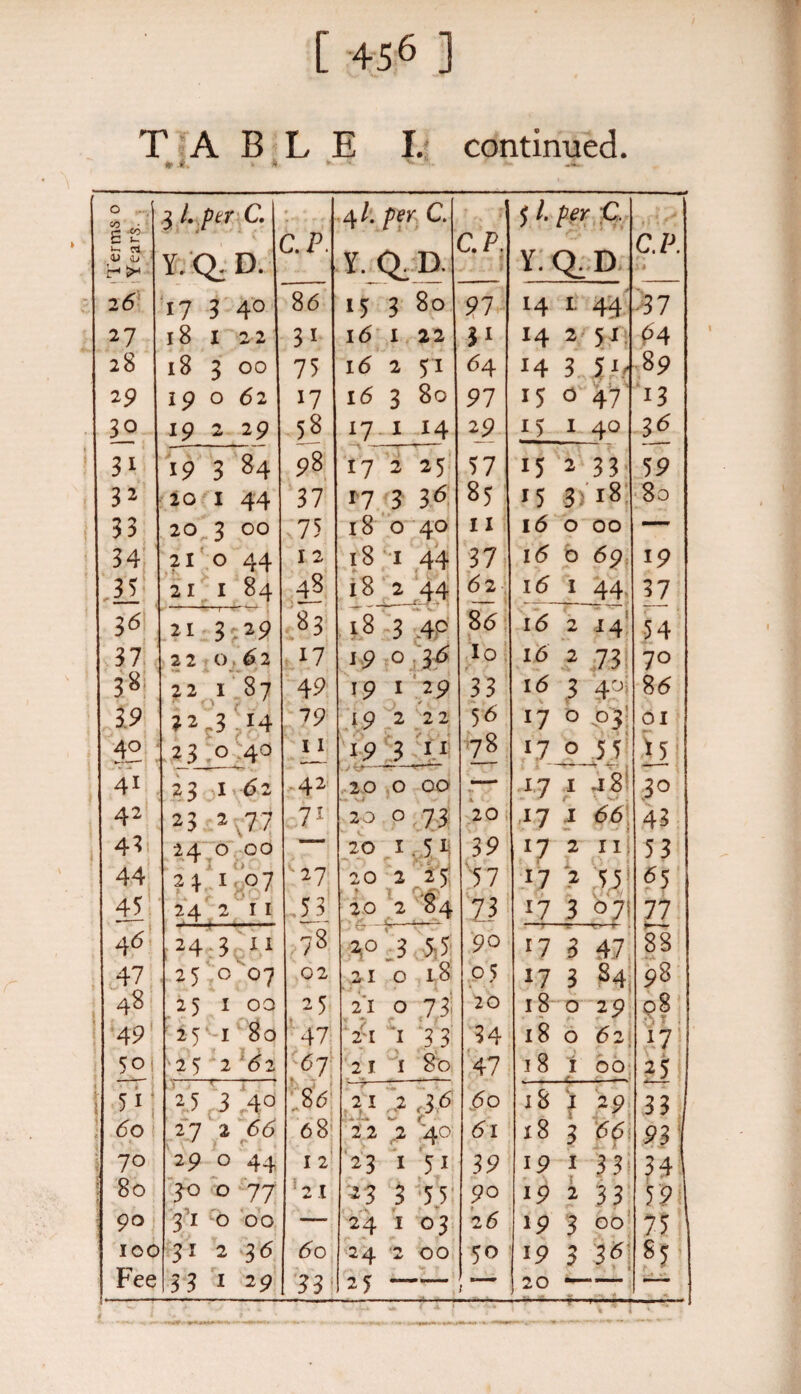 [ 456 ]
TABLE I. continued.
Terms o Years. | 3 l. per C. Y. Q. D. | C. P. | 4 l. per C. Y. Q. D. | C. P. | 5 l. per C. Y. Q. D | C. P.
26 | 17 3 40 | 86 | 15 3 80 | 97 | 14 1 44 | 37
27 | 18 1 22 | 31 | 16 1 22 | 31 | 14 2 51 | 64
28 | 18 3 00 | 75 | 16 2 51 | 64 | 14 3 51 | 89
29 | 19 0 62 | 17 | 16 3 80 | 97 | 15 0 47 | 13
30 | 19 2 29 | 58 | 17 1 14 | 29 | 15 1 40 | 36
31 | 19 3 84 | 98 | 17 2 25 | 57 | 15 2 33 | 59
32 | 20 1 44 | 37 | 17 3 36 | 85 | 15 3 18 | 80
33 | 20 3 00 | 75 | 18 0 40 | 11 | 16 0 00 | —
34 | 21 0 44 | 12 | 18 1 44 | 37 | 16 0 69 | 19
35 | 21 1 84 | 48 | 18 2 44 | 62 | 16 1 44 | 37
36 | 21 3 29 | 83 | 18 3 40 | 86 | 16 2 14 | 54
37 | 22 0 62 | 17 | 19 0 36 | 10 | 16 2 73 | 70
38 | 22 1 87 | 49 | 19 1 29 | 33 | 16 3 40 | 86
39 | 22 3 14 | 79 | 19 2 22 | 56 | 17 0 03 | 01
40 | 23 0 40 | 11 | 19 3 11 | 78 | 17 0 55 | 15
41 | 23 1 62 | 42 | 20 0 00 | — | 17 1 18 | 30
42 | 23 2 77 | 71 | 20 0 73 | 20 | 17 1 66 | 43
43 | 24 0 00 | — | 20 1 51 | 39 | 17 2 11 | 53
44 | 24 1 07 | 27 | 20 2 25 | 57 | 17 2 55 | 65
45 | 24 2 11 | 53 | 20 2 84 | 73 | 17 3 07 | 77
46 | 24 3 11 | 78 | 20 3 55 | 90 | 17 3 47 | 88
47 | 25 0 07 | 02 | 21 0 18 | 05 | 17 3 84 | 98
48 | 25 1 00 | 25 | 21 0 73 | 20 | 18 0 29 | 08
49 | 25 1 80 | 47 | 21 1 33 | 34 | 18 0 62 | 17
50 | 25 2 62 | 67 | 21 1 80 | 47 | 18 1 00 | 25
51 | 25 3 40 | 86 | 21 2 36 | 60 | 18 1 29 | 33
60 | 27 2 66 | 68 | 22 2 40 | 61 | 18 3 66 | 93
70 | 29 0 44 | 12 | 23 1 51 | 39 | 19 1 33 | 34
80 | 30 0 77 | 21 | 23 3 55 | 90 | 19 2 33 | 59
90 | 31 0 00 | — | 24 1 03 | 26 | 19 3 00 | 75
100 | 31 2 36 | 60 | 24 2 00 | 50 | 19 3 36 | 85
Fee | 33 1 29 | 33 | 25 — — | — | 20 — — | —